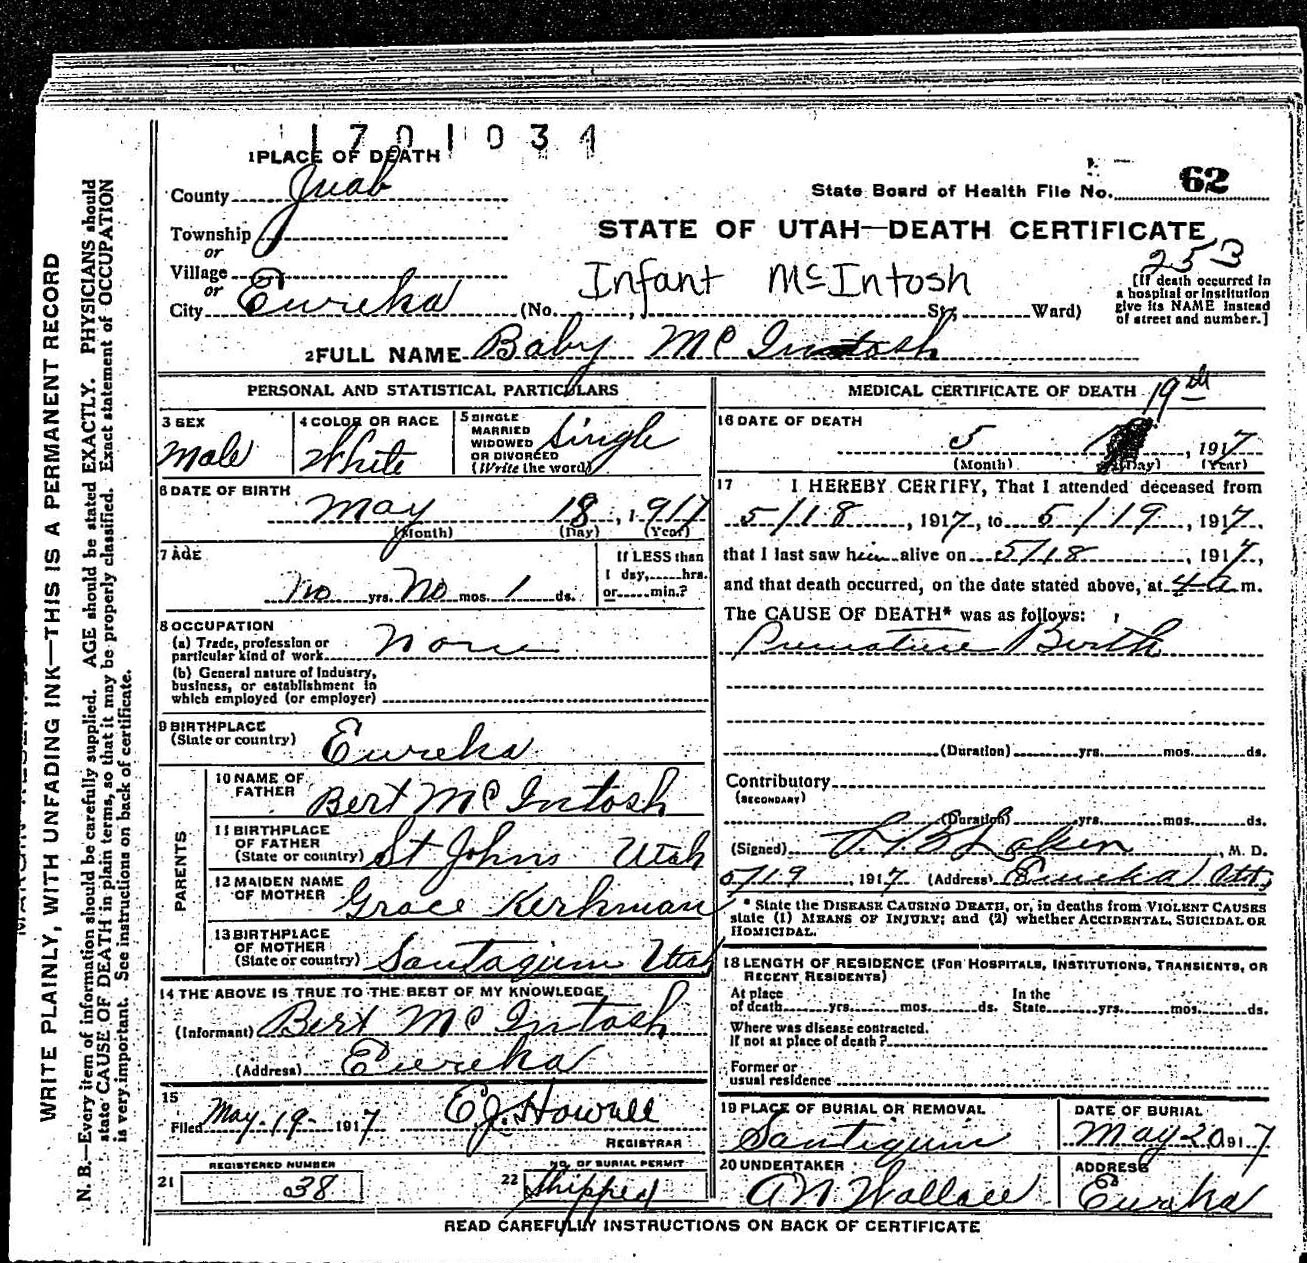 1701034
1 PLACE OF DEATH
County Juab
State Board of Health File No. 62
Township
or
STATE OF UTAH—DEATH CERTIFICATE
253
Village
or
Infant McIntosh
City Eureka (No. , St., Ward)
[If death occurred in a hospital or institution give its NAME instead of street and number.]
2 FULL NAME Baby McIntosh
PERSONAL AND STATISTICAL PARTICULARS
3 SEX
Male
4 COLOR OR RACE
White
5 SINGLE
MARRIED
WIDOWED
OR DIVORCED
(Write the word)
Single
6 DATE OF BIRTH
May 18, 1917
(Month) (Day) (Year)
7 AGE
No yrs. No mos. 1 ds.
If LESS than
1 day, hrs.
or min.?
8 OCCUPATION
(a) Trade, profession or
particular kind of work None
(b) General nature of Industry,
business, or establishment in
which employed (or employer)
9 BIRTHPLACE
(State or country) Eureka
PARENTS
10 NAME OF
FATHER Bert McIntosh
11 BIRTHPLACE
OF FATHER
(State or country) St Johns Utah
12 MAIDEN NAME
OF MOTHER Grace Kerkman
13 BIRTHPLACE
OF MOTHER
(State or country) Santaquin Utah
14 THE ABOVE IS TRUE TO THE BEST OF MY KNOWLEDGE
(Informant) Bert McIntosh
(Address) Eureka
15
Filed May-19- 1917 E.J. Howell
REGISTRAR
REGISTERED NUMBER
21 38
NO. OF BURIAL PERMIT
22 Shipped
MEDICAL CERTIFICATE OF DEATH
19th
16 DATE OF DEATH
5 , 1917
(Month) (Day) (Year)
17 I HEREBY CERTIFY, That I attended deceased from
5/18, 1917, to 5/19, 1917,
that I last saw him alive on 5/18, 1917,
and that death occurred, on the date stated above, at 4 a m.
The CAUSE OF DEATH* was as follows:
Premature Birth
(Duration) yrs. mos. ds.
Contributory
(SECONDARY)
(Duration) yrs. mos. ds.
(Signed) Laker, M. D.
5/19, 1917 (Address) Eureka Utt,
* State the DISEASE CAUSING DEATH, or, in deaths from VIOLENT CAUSES
state (1) MEANS OF INJURY; and (2) whether ACCIDENTAL, SUICIDAL OR
HOMICIDAL.
18 LENGTH OF RESIDENCE (FOR HOSPITALS, INSTITUTIONS, TRANSIENTS, OR
RECENT RESIDENTS)
At place
of death yrs. mos. ds.
In the
State yrs. mos. ds.
Where was disease contracted.
If not at place of death?
Former or
usual residence
19 PLACE OF BURIAL OR REMOVAL
Santiquin
DATE OF BURIAL
May 20 1917
20 UNDERTAKER
A N Wallace
ADDRESS
Eureka
READ CAREFULLY INSTRUCTIONS ON BACK OF CERTIFICATE
WRITE PLAINLY, WITH UNFADING INK—THIS IS A PERMANENT RECORD
N. B.—Every item of information should be carefully supplied. AGE should be stated EXACTLY. PHYSICIANS should
state CAUSE OF DEATH in plain terms, so that it may be properly classified. Exact statement of OCCUPATION
is very important. See instructions on back of certificate.